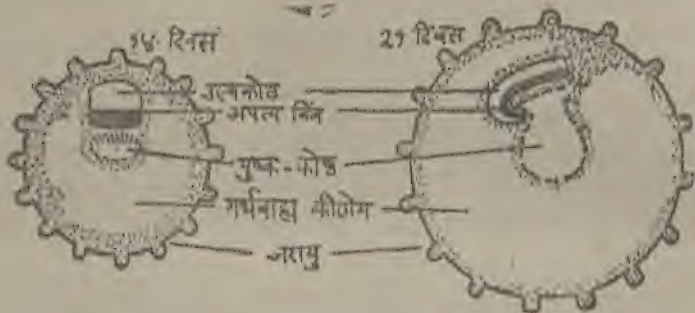 १४ दिवस
२१ दिवस
उल्बकोष
अपत्य बिंब
पुष्क-कोष
गर्भबाह्य कोष्ठांग
जरायु